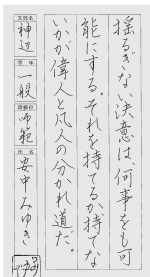 揺るぎない決意は、何事をも可
能にする。それを持てるか持てな
いかが偉人と凡人の分かれ道だ。
支部名
神辺
学年
一般
段級位
師範
氏名
安中みゆき